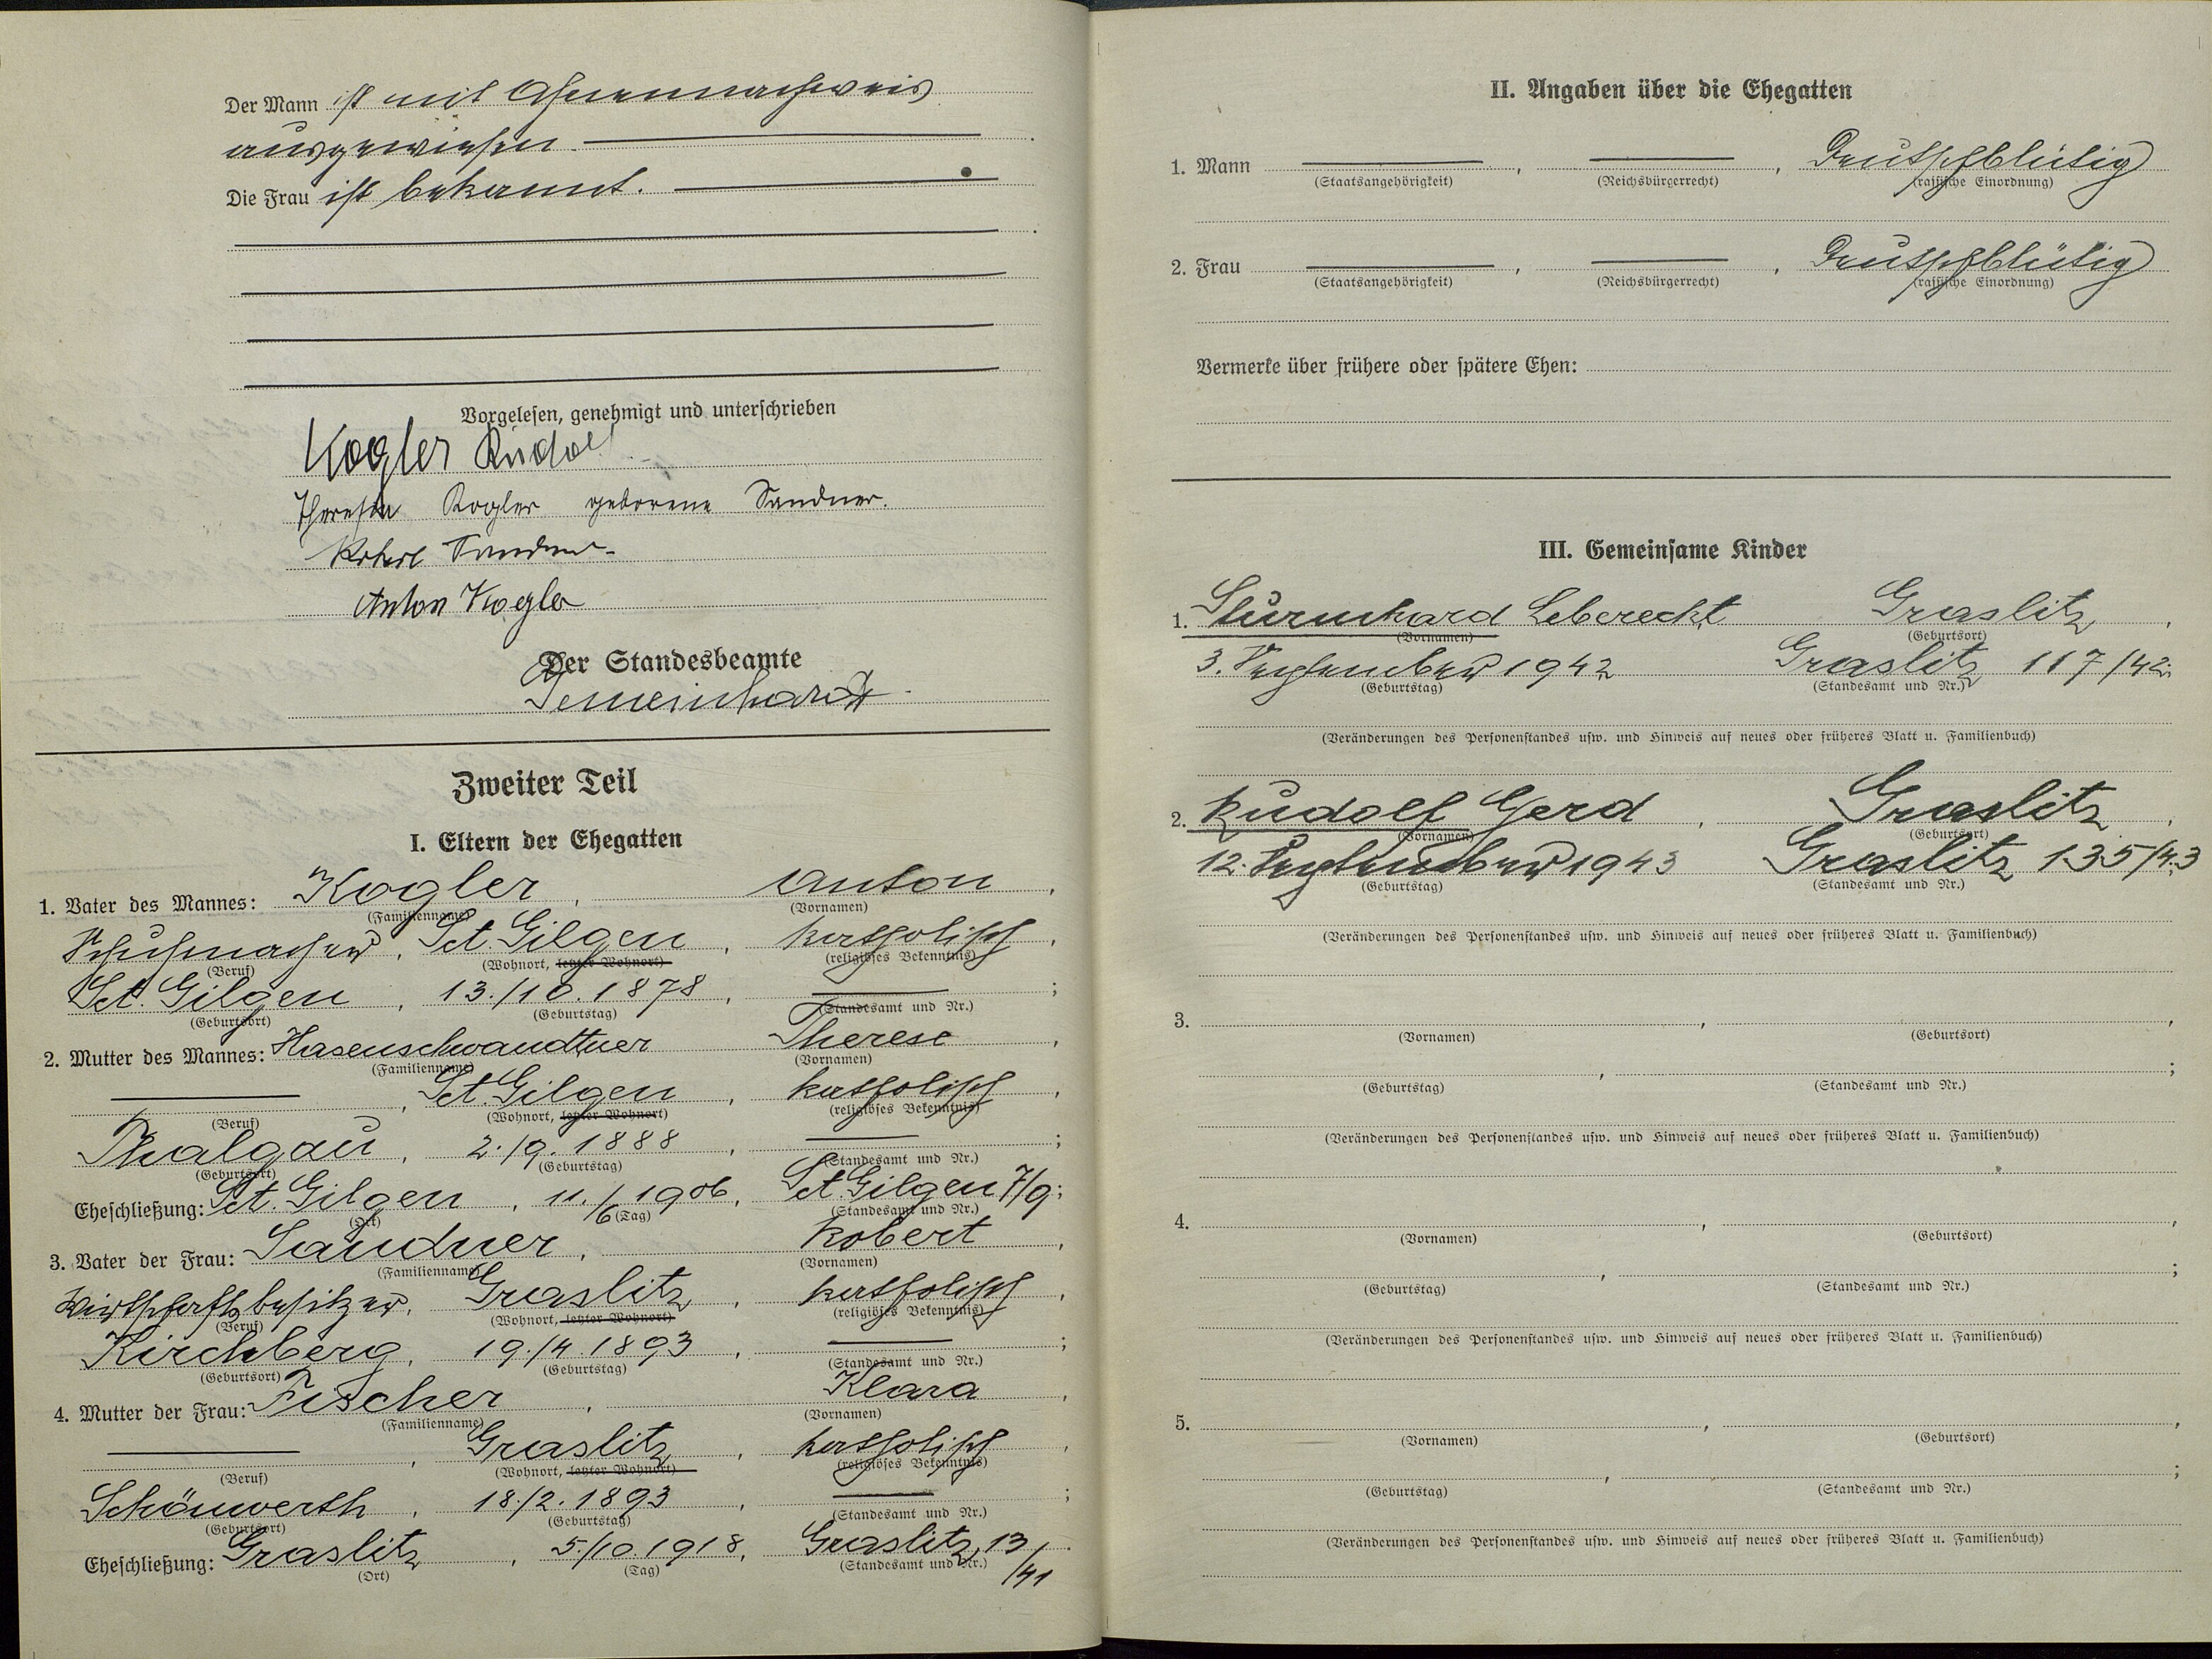 Der Mann ist mit Ahnennachweis
ausgewiesen.
Die Frau ist bekannt.
Vorgelesen, genehmigt und unterschrieben
Kogler Rudolf
Theresia Kogler geborene Sandner.
Robert Sandner
Anton Kogler
Der Standesbeamte
Gemeinhardt
Zweiter Teil
I. Eltern der Ehegatten
1. Vater des Mannes: Kogler, Anton,
(Familienname) (Vornamen)
Schuhmacher, Sct. Gilgen, katholisch,
(Beruf) (Wohnort, letzter Wohnort) (religiöses Bekenntnis)
Sct. Gilgen, 13./10. 1878, ;
(Geburtsort) (Geburtstag) (Standesamt und Nr.)
2. Mutter des Mannes: Hasenschwandtner Therese,
(Familienname) (Vornamen)
, Sct. Gilgen, katholisch,
(Beruf) (Wohnort, letzter Wohnort) (religiöses Bekenntnis)
Thalgau, 2./9. 1888, ;
(Geburtsort) (Geburtstag) (Standesamt und Nr.)
Eheschließung: Sct. Gilgen, 11./6 1906, Sct. Gilgen 7/9;
(Ort) (Tag) (Standesamt und Nr.)
3. Vater der Frau: Sandner, Robert,
(Familienname) (Vornamen)
Wirtschaftsbesitzer, Graslitz, katholisch,
(Beruf) (Wohnort, letzter Wohnort) (religiöses Bekenntnis)
Kirchberg, 19./4. 1893, ;
(Geburtsort) (Geburtstag) (Standesamt und Nr.)
4. Mutter der Frau: Fischer, Klara,
(Familienname) (Vornamen)
, Graslitz, katholisch,
(Beruf) (Wohnort, letzter Wohnort) (religiöses Bekenntnis)
Schönwerth, 18./2. 1893, ;
(Geburtsort) (Geburtstag) (Standesamt und Nr.)
Eheschließung: Graslitz, 5./10. 1918, Graslitz, 13/41
(Ort) (Tag) (Standesamt und Nr.)
II. Angaben über die Ehegatten
1. Mann , , Deutschblütig
(Staatsangehörigkeit) (Reichsbürgerrecht) (rassische Einordnung)
2. Frau , , Deutschblütig
(Staatsangehörigkeit) (Reichsbürgerrecht) (rassische Einordnung)
Vermerke über frühere oder spätere Ehen:
III. Gemeinsame Kinder
1. Sturmhard Leberecht Graslitz,
(Vornamen) (Geburtsort)
3. September 1942 Graslitz 117/42;
(Geburtstag) (Standesamt und Nr.)
(Veränderungen des Personenstandes usw. und Hinweis auf neues oder früheres Blatt u. Familienbuch)
2. Rudolf Gerd, Graslitz,
(Vornamen) (Geburtsort)
12. September 1943 Graslitz 135/43
(Geburtstag) (Standesamt und Nr.)
(Veränderungen des Personenstandes usw. und Hinweis auf neues oder früheres Blatt u. Familienbuch)
3. , ,
(Vornamen) (Geburtsort)
, ;
(Geburtstag) (Standesamt und Nr.)
(Veränderungen des Personenstandes usw. und Hinweis auf neues oder früheres Blatt u. Familienbuch)
4. , ,
(Vornamen) (Geburtsort)
, ;
(Geburtstag) (Standesamt und Nr.)
(Veränderungen des Personenstandes usw. und Hinweis auf neues oder früheres Blatt u. Familienbuch)
5. , ,
(Vornamen) (Geburtsort)
, ;
(Geburtstag) (Standesamt und Nr.)
(Veränderungen des Personenstandes usw. und Hinweis auf neues oder früheres Blatt u. Familienbuch)